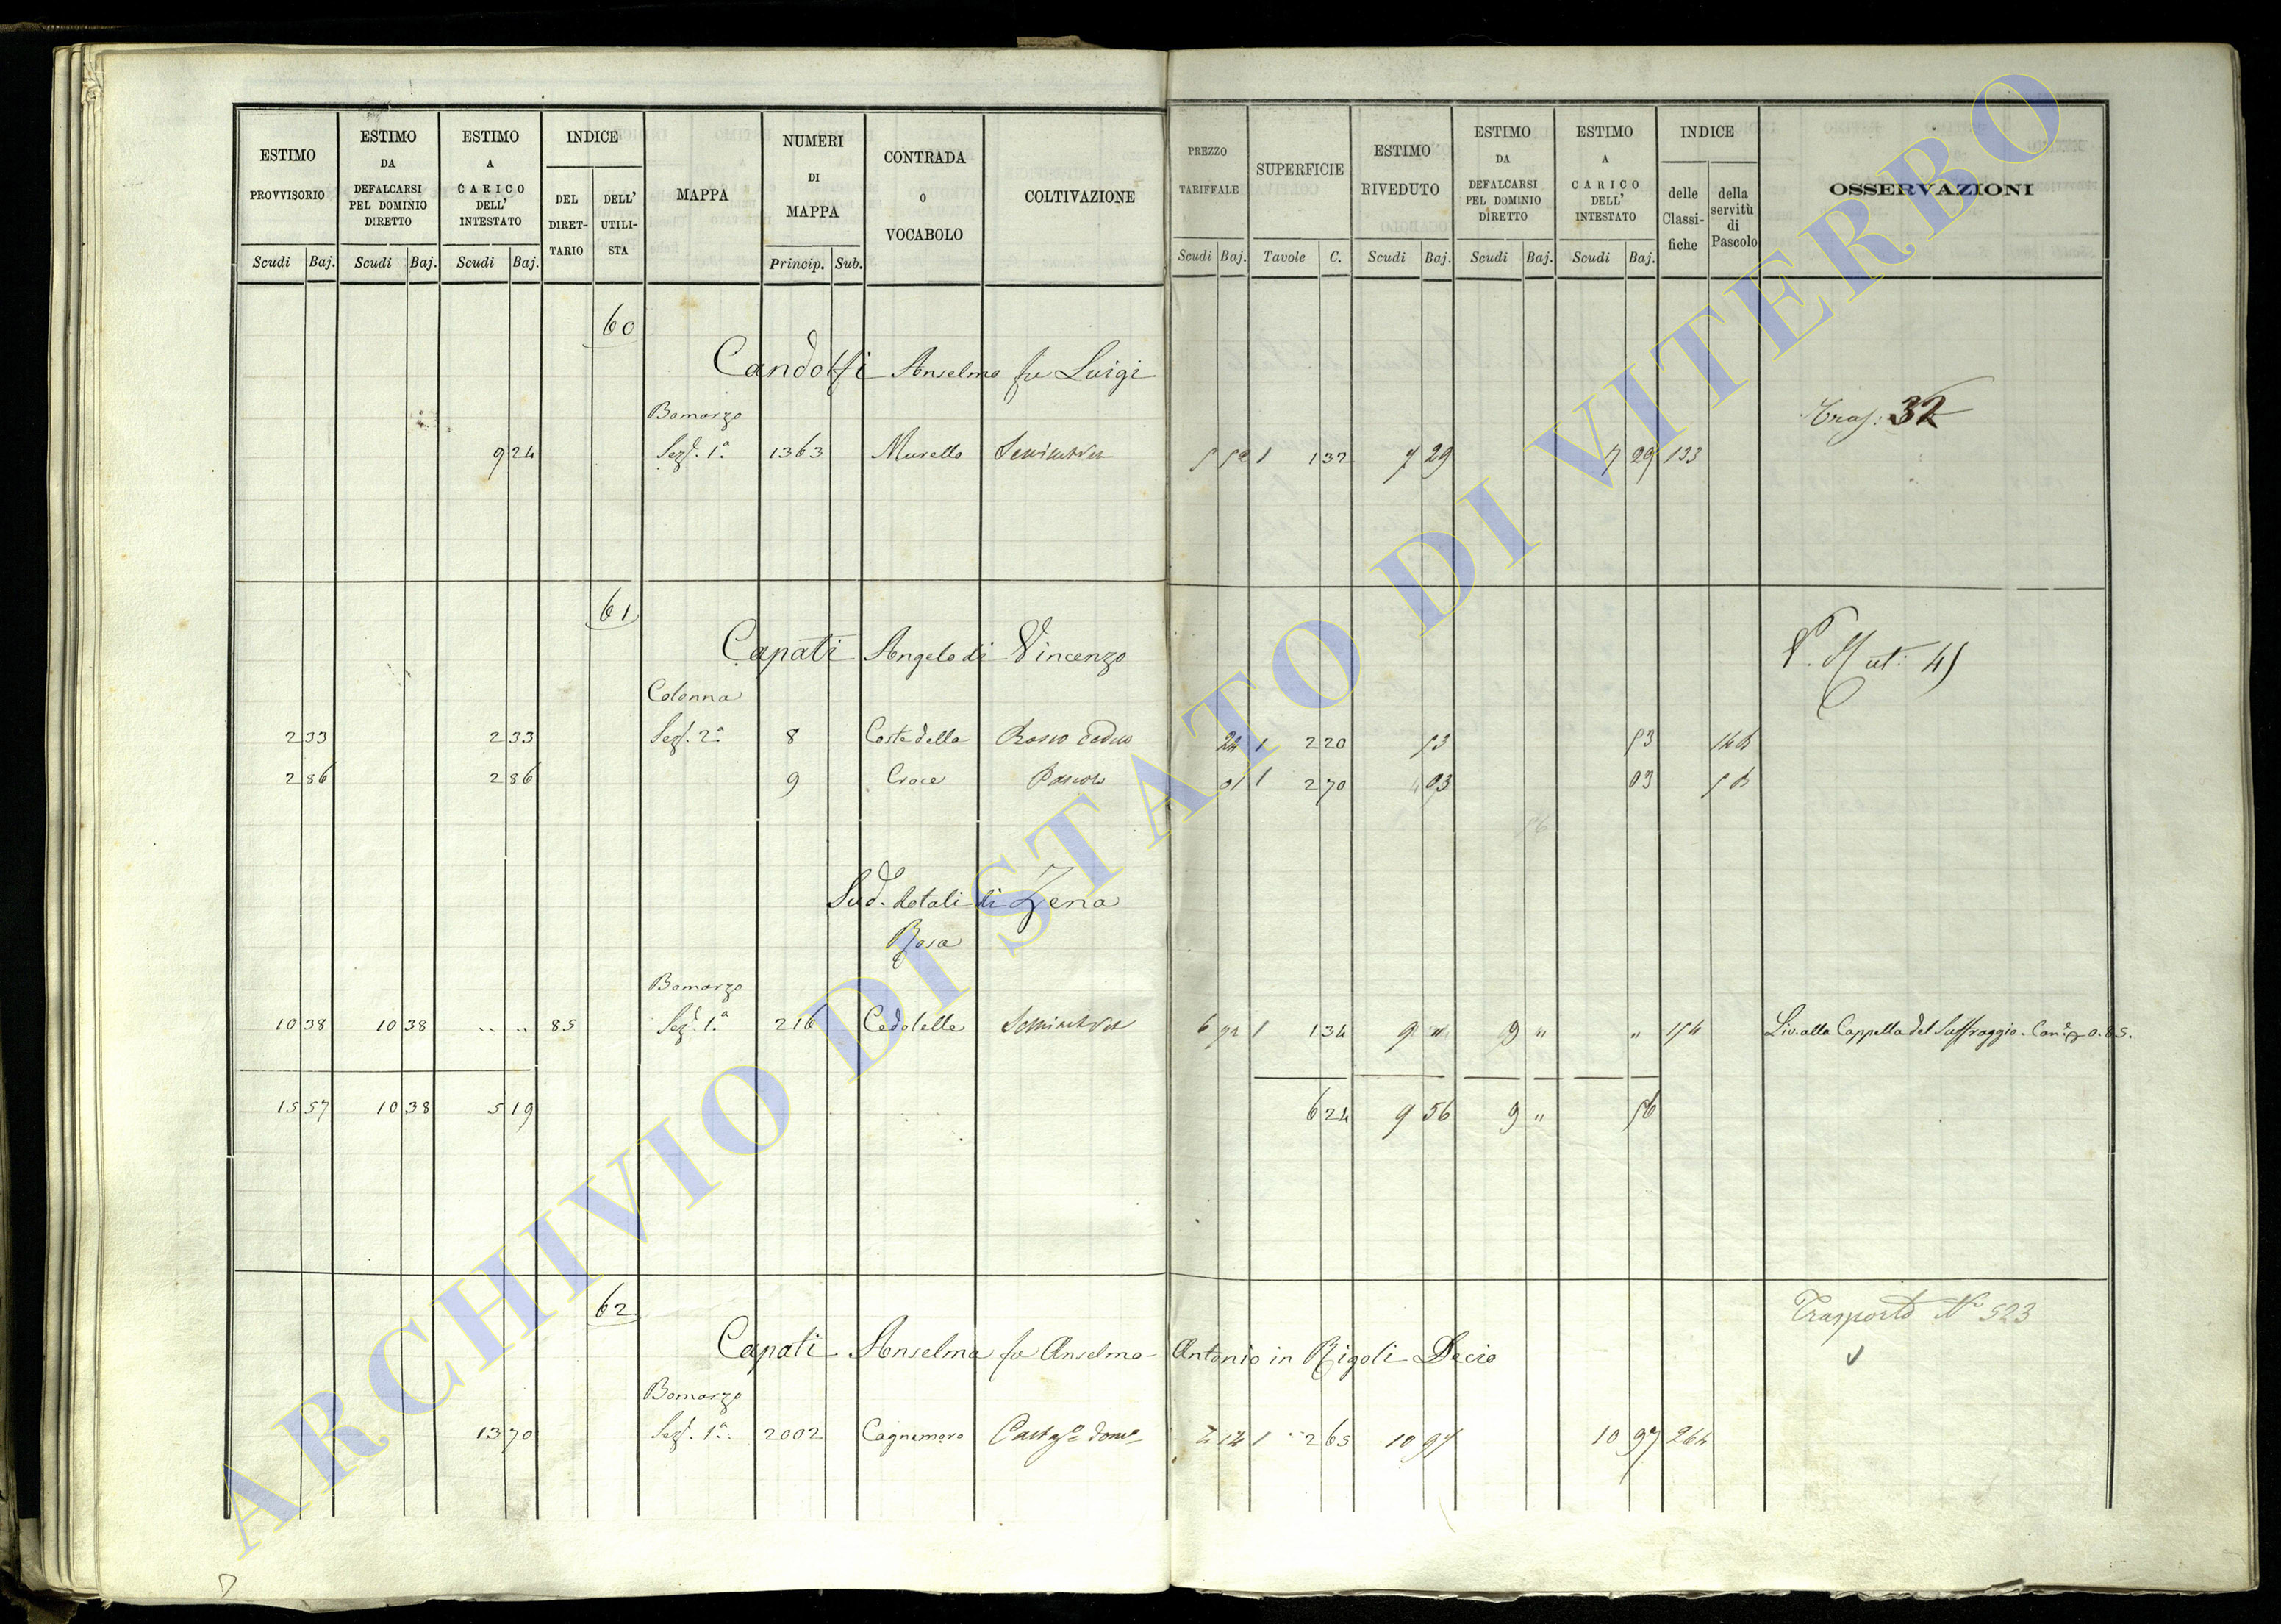 ESTIMO PROVVISORIO
ESTIMO DA DEFALCARSI PEL DOMINIO DIRETTO
ESTIMO A CARICO DELL' INTESTATO
INDICE
DEL DIRET-TARIO
DELL' UTILI-STA
MAPPA
NUMERI DI MAPPA
CONTRADA O VOCABOLO
COLTIVAZIONE
PREZZO TARIFFALE
SUPERFICIE
ESTIMO RIVEDUTO
ESTIMO DA DEFALCARSI PEL DOMINIO DIRETTO
ESTIMO A CARICO DELL' INTESTATO
INDICE
delle Classi-fiche
della servitù di Pascolo
OSSERVAZIONI
Scudi Baj. Scudi Baj. Scudi Baj. Princip. Sub. Scudi Baj. Tavole C. Scudi Baj. Scudi Baj. Scudi Baj.
60
Candolfi Anselmo fu Luigi
Bomarzo
Tras: 32
9 24 Sez. 1ª 1363 Murello 1 1 32 7 29 7 29 133
61
Capati Angelo di Vincenzo
V. Mut: 45
Colonna
2 33 2 33 Sez. 2ª 8 Costa della Bosco ceduo 24 1 2 20 53 53
2 86 2 86 9 Croce Pascolo 01 1 2 70 03 03
Sud. dotali di Zena
Rosa
Bomarzo
10 38 10 38 " " 85 Sez. 1ª 216 Cedolelle 1 1 34 9 " 9 " " 154 Liv. alla Cappella del Suffraggio. Can. 0.85.
15 57 10 38 5 19 6 24 9 56 9 " 56
62
Trasporto Nº 523
Capati Anselma fu Anselmo-Antonio in Rigoli Decio
Bomarzo
13 70 Sez. 1ª 2002 Cagnemoro 1 2 65 10 97 10 97 264
ARCHIVIO DI STATO DI VITERBO